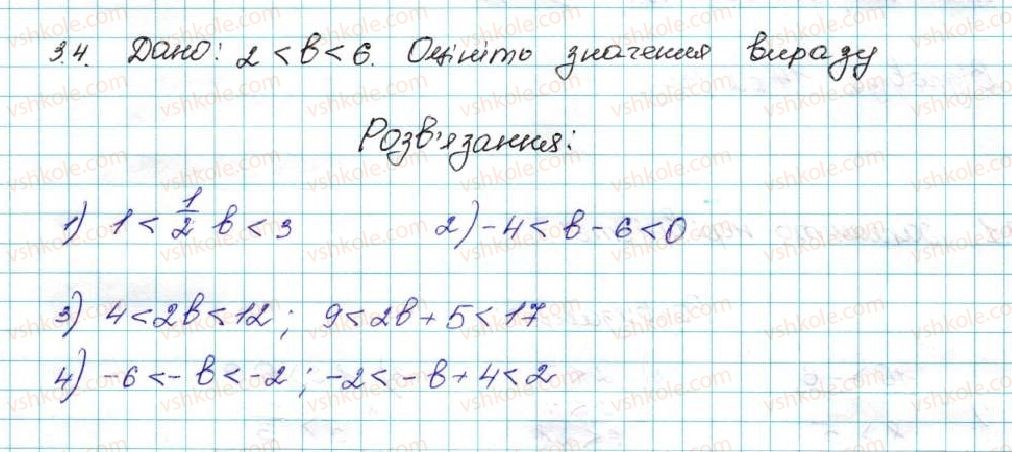 3.4. Дано: 2 < b < 6. Оцініть значення виразу
Розв'язання:
1) 1 < 1/2 b < 3 2) -4 < b - 6 < 0
3) 4 < 2b < 12; 9 < 2b + 5 < 17
4) -6 < -b < -2; -2 < -b + 4 < 2